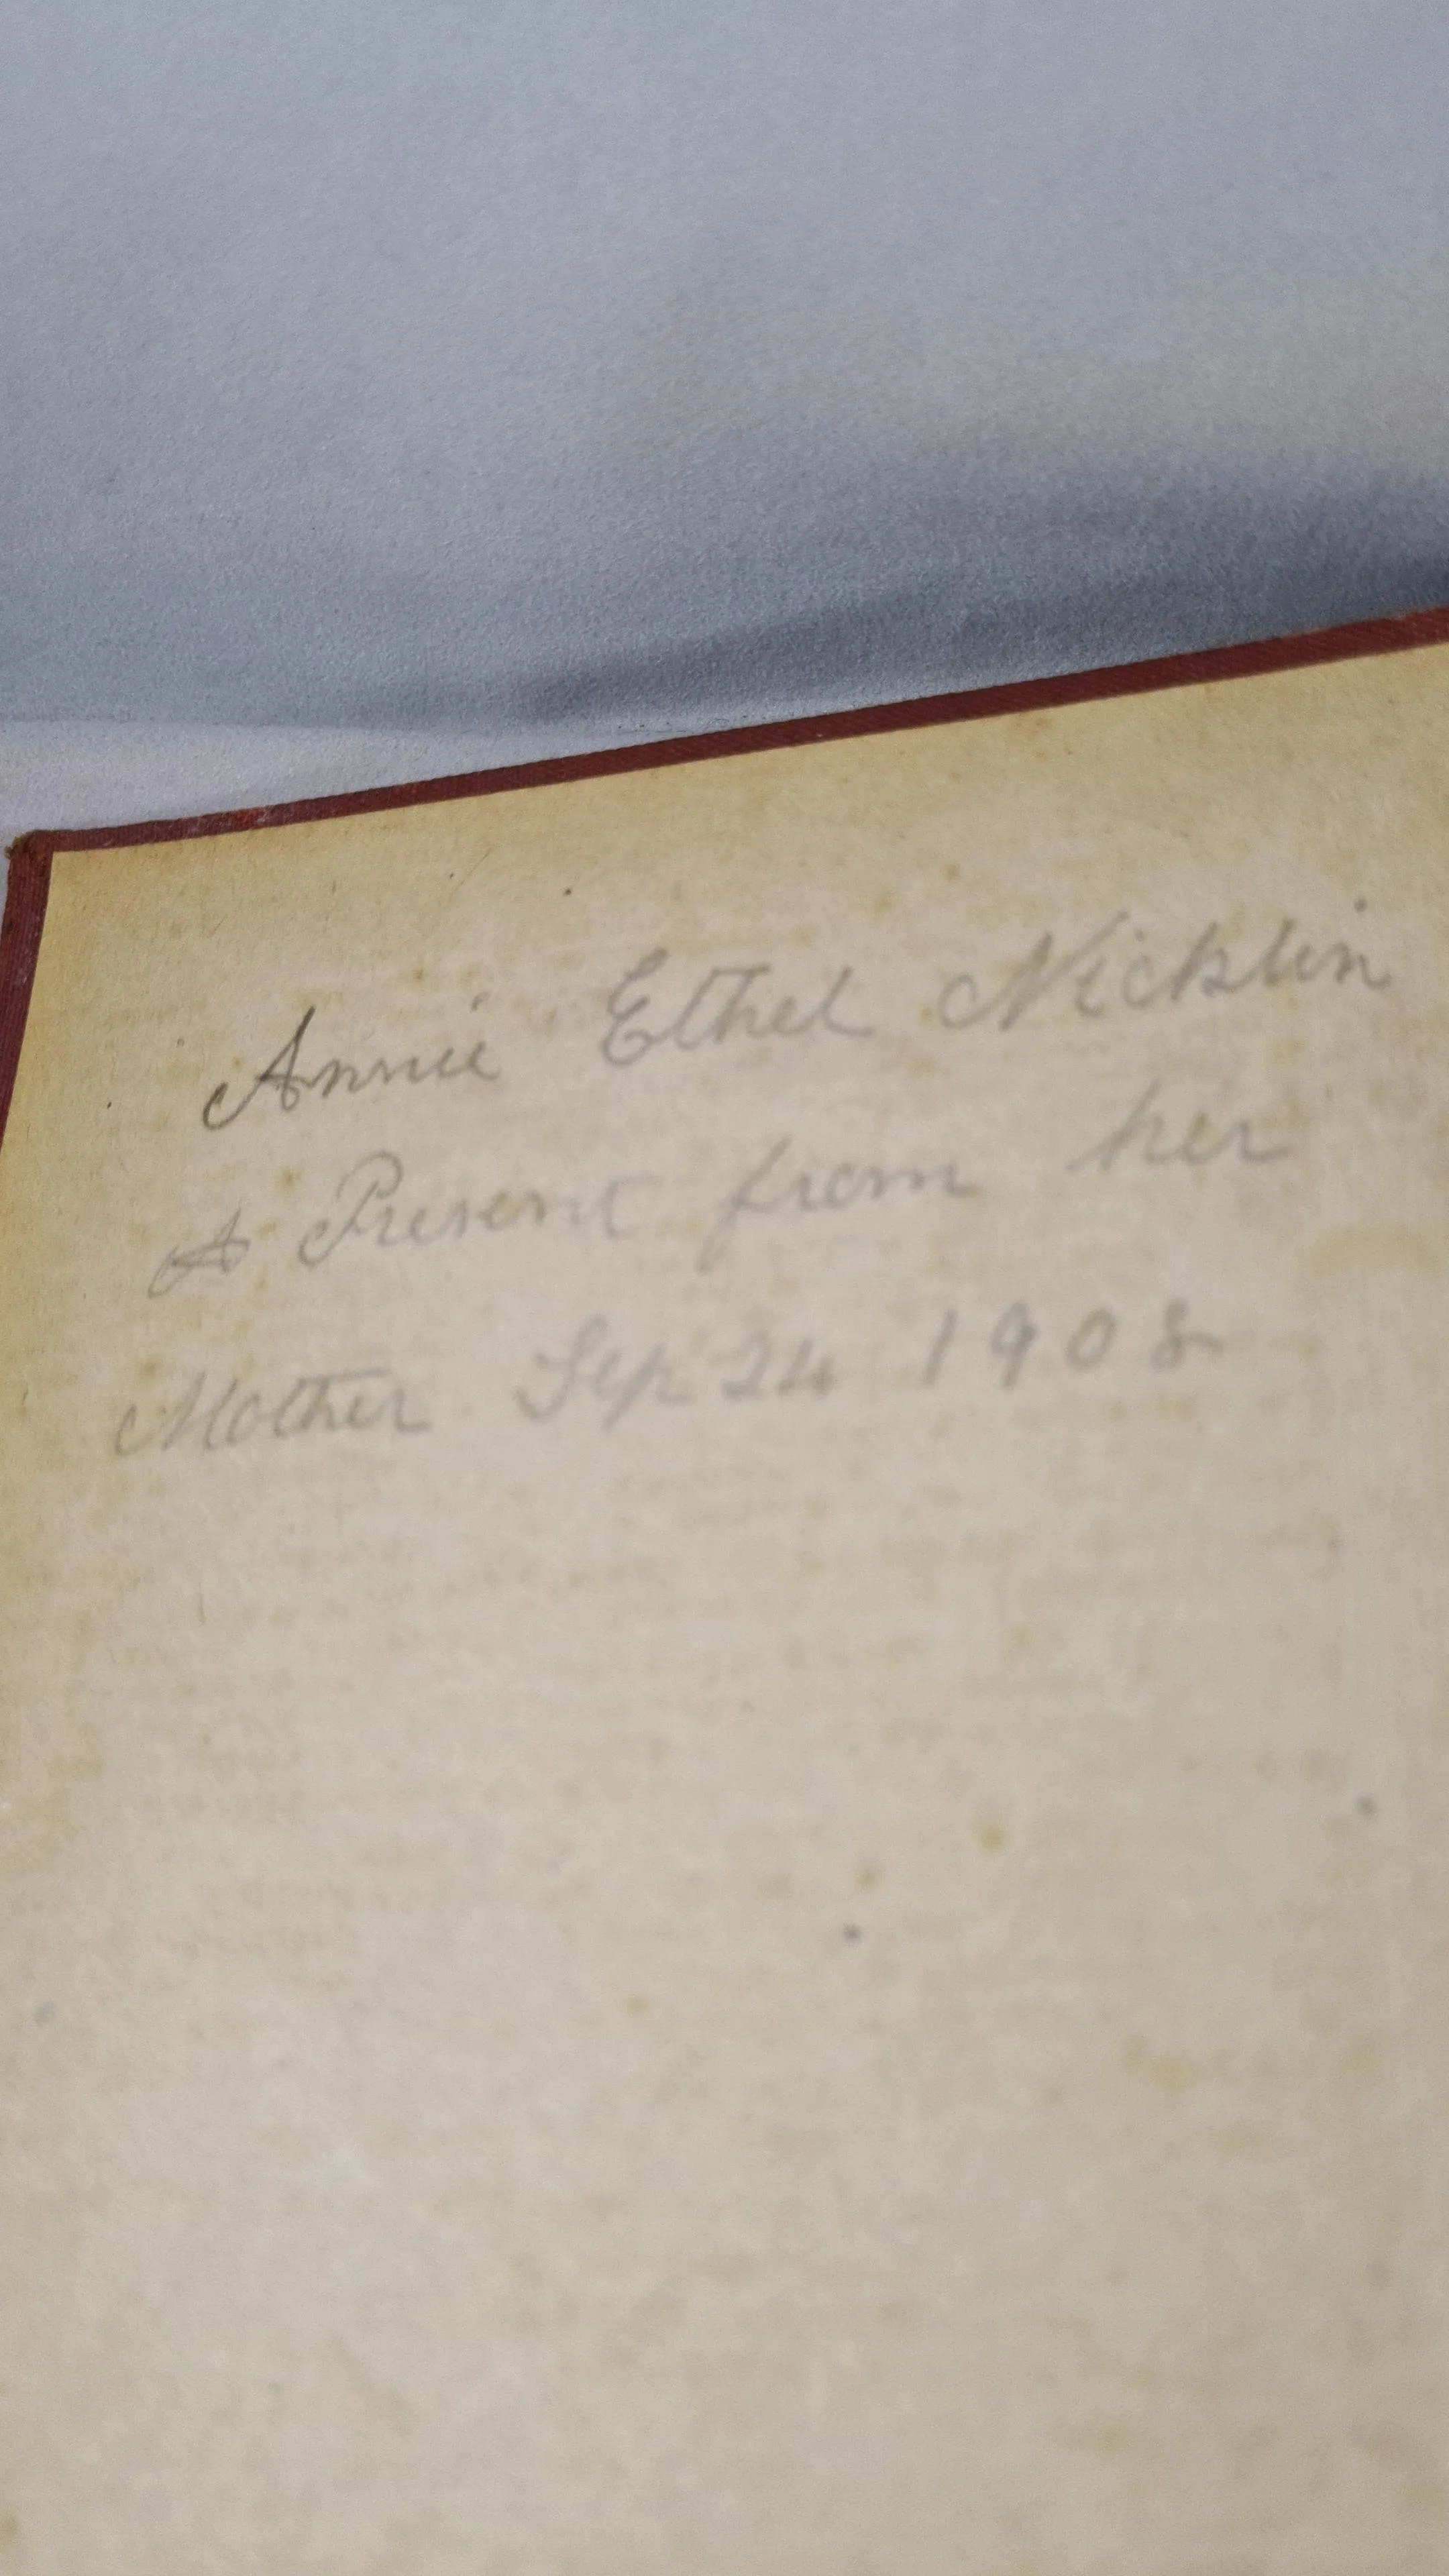 Annie Ethel Nicklin
A Present from her
Mother Sep 24 1908